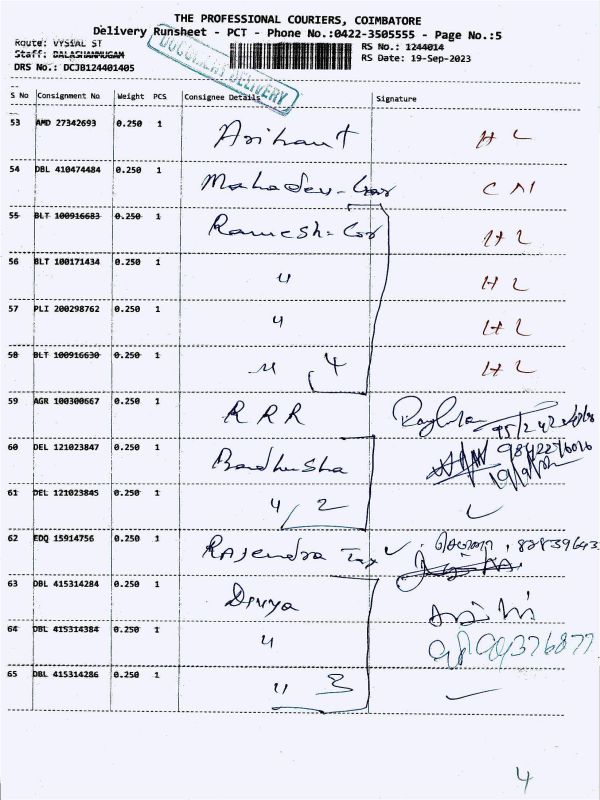 THE PROFESSIONAL COURIERS, COIMBATORE
Delivery Runsheet - PCT - Phone No.:0422-3505555 - Page No.:5
Route: VYSIAL ST
RS No.: 1244014
Staff: BALASHANMUGAM
RS Date: 19-Sep-2023
DRS No.: DCJB124401405
DOCUMENT DELIVERY
S No Consignment No Weight PCS Consignee Details Signature
53 AMD 27342693 0.250 1 Arihant H L
54 DBL 410474484 0.250 1 Mahadev- C N
55 BLT 100916683 0.250 1 Ramesh- H L
56 BLT 100171434 0.250 1 " H L
57 PLI 200298762 0.250 1 " H L
58 BLT 100916630 0.250 1 " 4 H L
59 AGR 100300667 0.250 1 R R R
60 DEL 121023847 0.250 1 Badhusha
61 DEL 121023845 0.250 1 " 2 ✓
62 EDQ 15914756 0.250 1 Rajendra Tax ✓
63 DBL 415314284 0.250 1 Divya
64 DBL 415314384 0.250 1 "
65 DBL 415314286 0.250 1 " 3 ✓
4